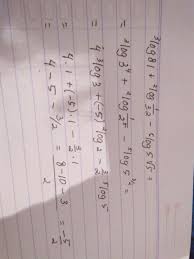 ³log 81 + ²log 1/32 - ⁵log 5√5 =
= ³log 3⁴ + ²log 1/2⁵ - ⁵log 5^(3/2) =
= 4 ³log 3 + (-5) ²log 2 - 3/2 ⁵log 5
= 4·1 + (-5)·1 - 3/2·1
= 4 - 5 - 3/2 = (8 - 10 - 3)/2 = -5/2